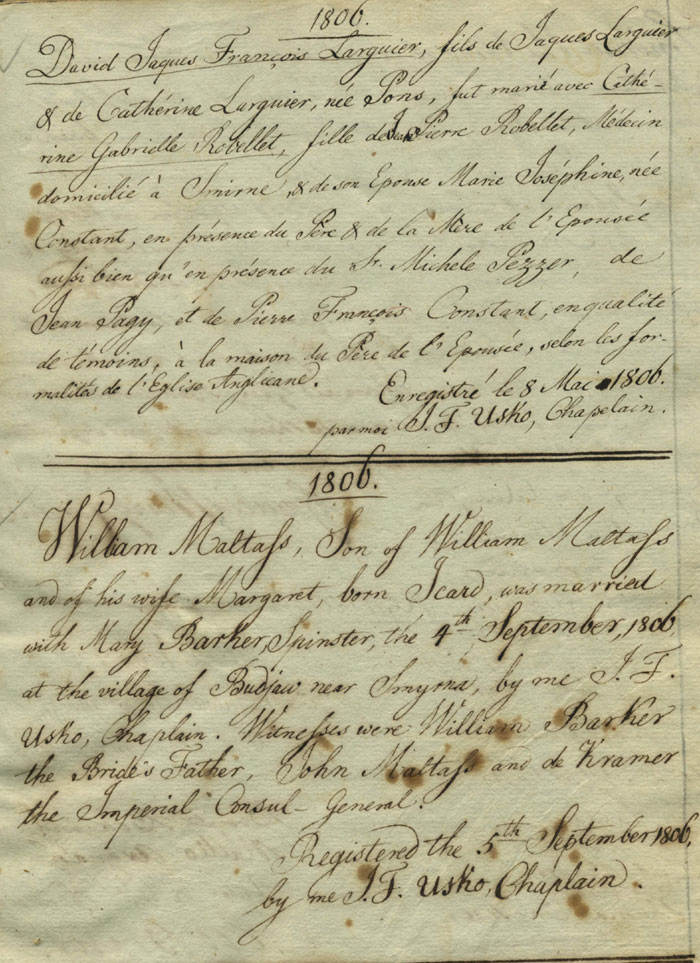 1806.
David Jaques François Larguier, fils de Jaques Larguier
& de Cathérine Larguier, née Pons, fut marié avec Cathé-
rine Gabrielle Robellet, fille de Jean Pierre Robellet, Médecin
domicilié à Smirne, & de son Epouse Marie Joséphine, née
Constant, en présence du Père & de la Mère de l'Epousée
aussi bien qu'en présence du Sr. Michele Pezzer, de
Jean Pagy, et de Pierre François Constant, en qualité
de témoins, à la maison du Père de l'Epousée, selon les for-
malités de l'Eglise Anglicane.
Enregistré le 8 Mai 1806.
par moi J. F. Usko, Chapelain.
1806.
William Maltass, Son of William Maltass
and of his wife Margaret, born Icard, was married
with Mary Barker, Spinster, the 4th September, 1806
at the village of Budjaw near Smyrna, by me J. F.
Usko, Chaplain. Witnesses were William Barker
the Bride's Father, John Maltass and de Kramer
the Imperial Consul-General.
Registered the 5th September 1806,
by me J. F. Usko, Chaplain.